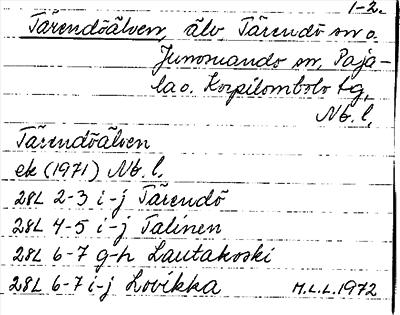 1-2.
Tärendöälven, älv Tärendö sn o.
Junosuando sn, Paja-
la o. Korpilombolo tg,
Nb. l.
Tärendöälven
ek (1971) Nb. l.
28L 2-3 i-j Tärendö
28L 4-5 i-j Talinen
28L 6-7 g-h Lautakoski
28L 6-7 i-j Lovikka M.L.L. 1972